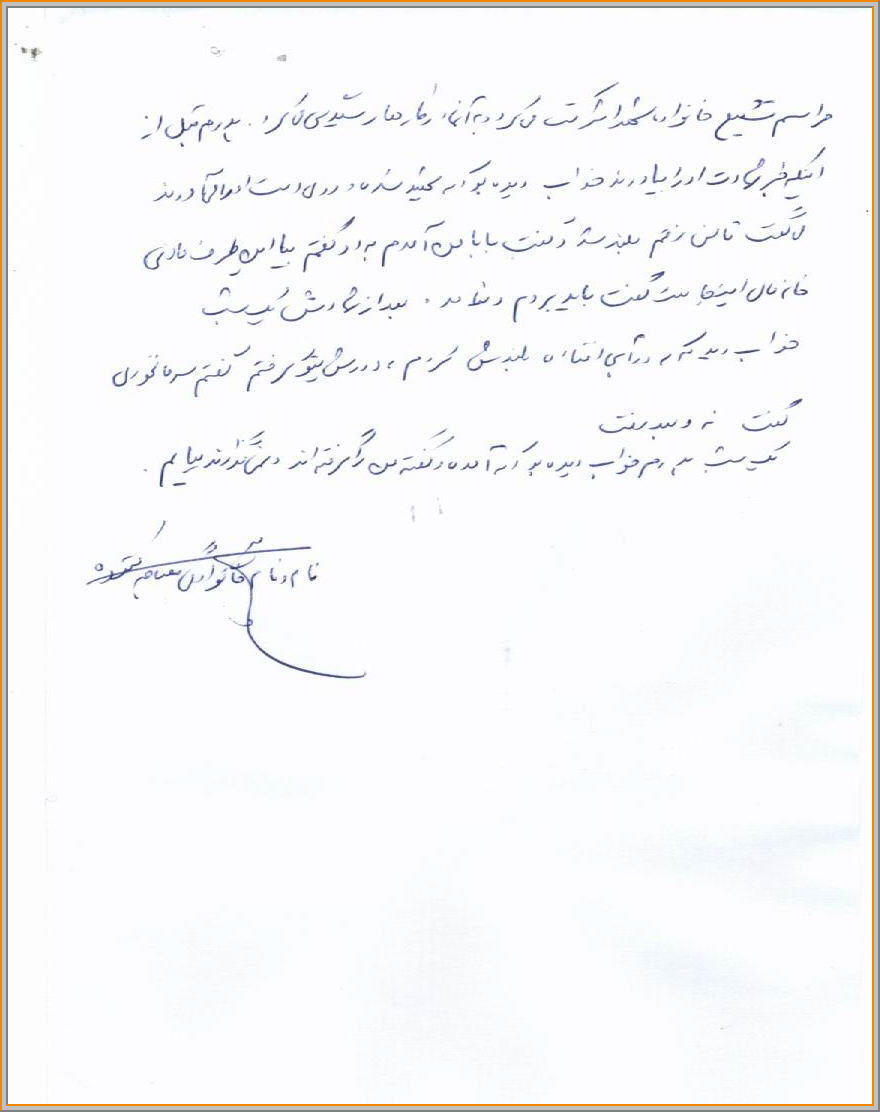 مراسم تشییع خانواده شهدا شرکت می‌کرد و به آنها در کارها رسیدگی می‌کرد. پدرم قبل از
اینکه خبر شهادت او را بیاورند خواب دیده بود که شهید شده و روی دست او را می‌آورند
می‌گفت تا من رفتم بلند شد و گفت بابا من آمدم به او گفتم بیا این طرف
خانه‌مان اینجا گفت باید بروم. بعد از شهادتش یک شب
خواب دید که در آب افتاده بلندش کردم و دورش پتو گرفتم گفتم سرما نخوری
گفت نه و بعد رفت
یک شب پدرم خواب دیده بود که آمده و گفته من را گرفته‌اند و نمی‌گذارند بیایم.
نام و نام خانوادگی مصاحبه کننده